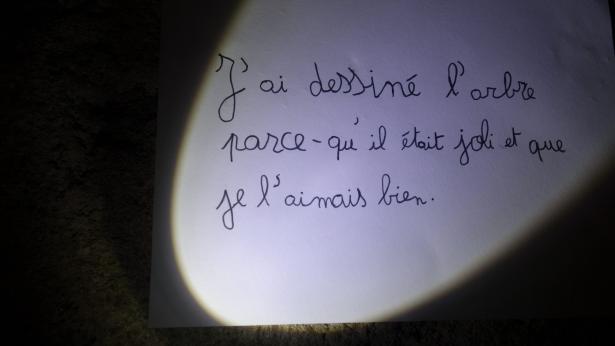 J'ai dessiné l'arbre
parce-qu'il était joli et que
je l'aimais bien.